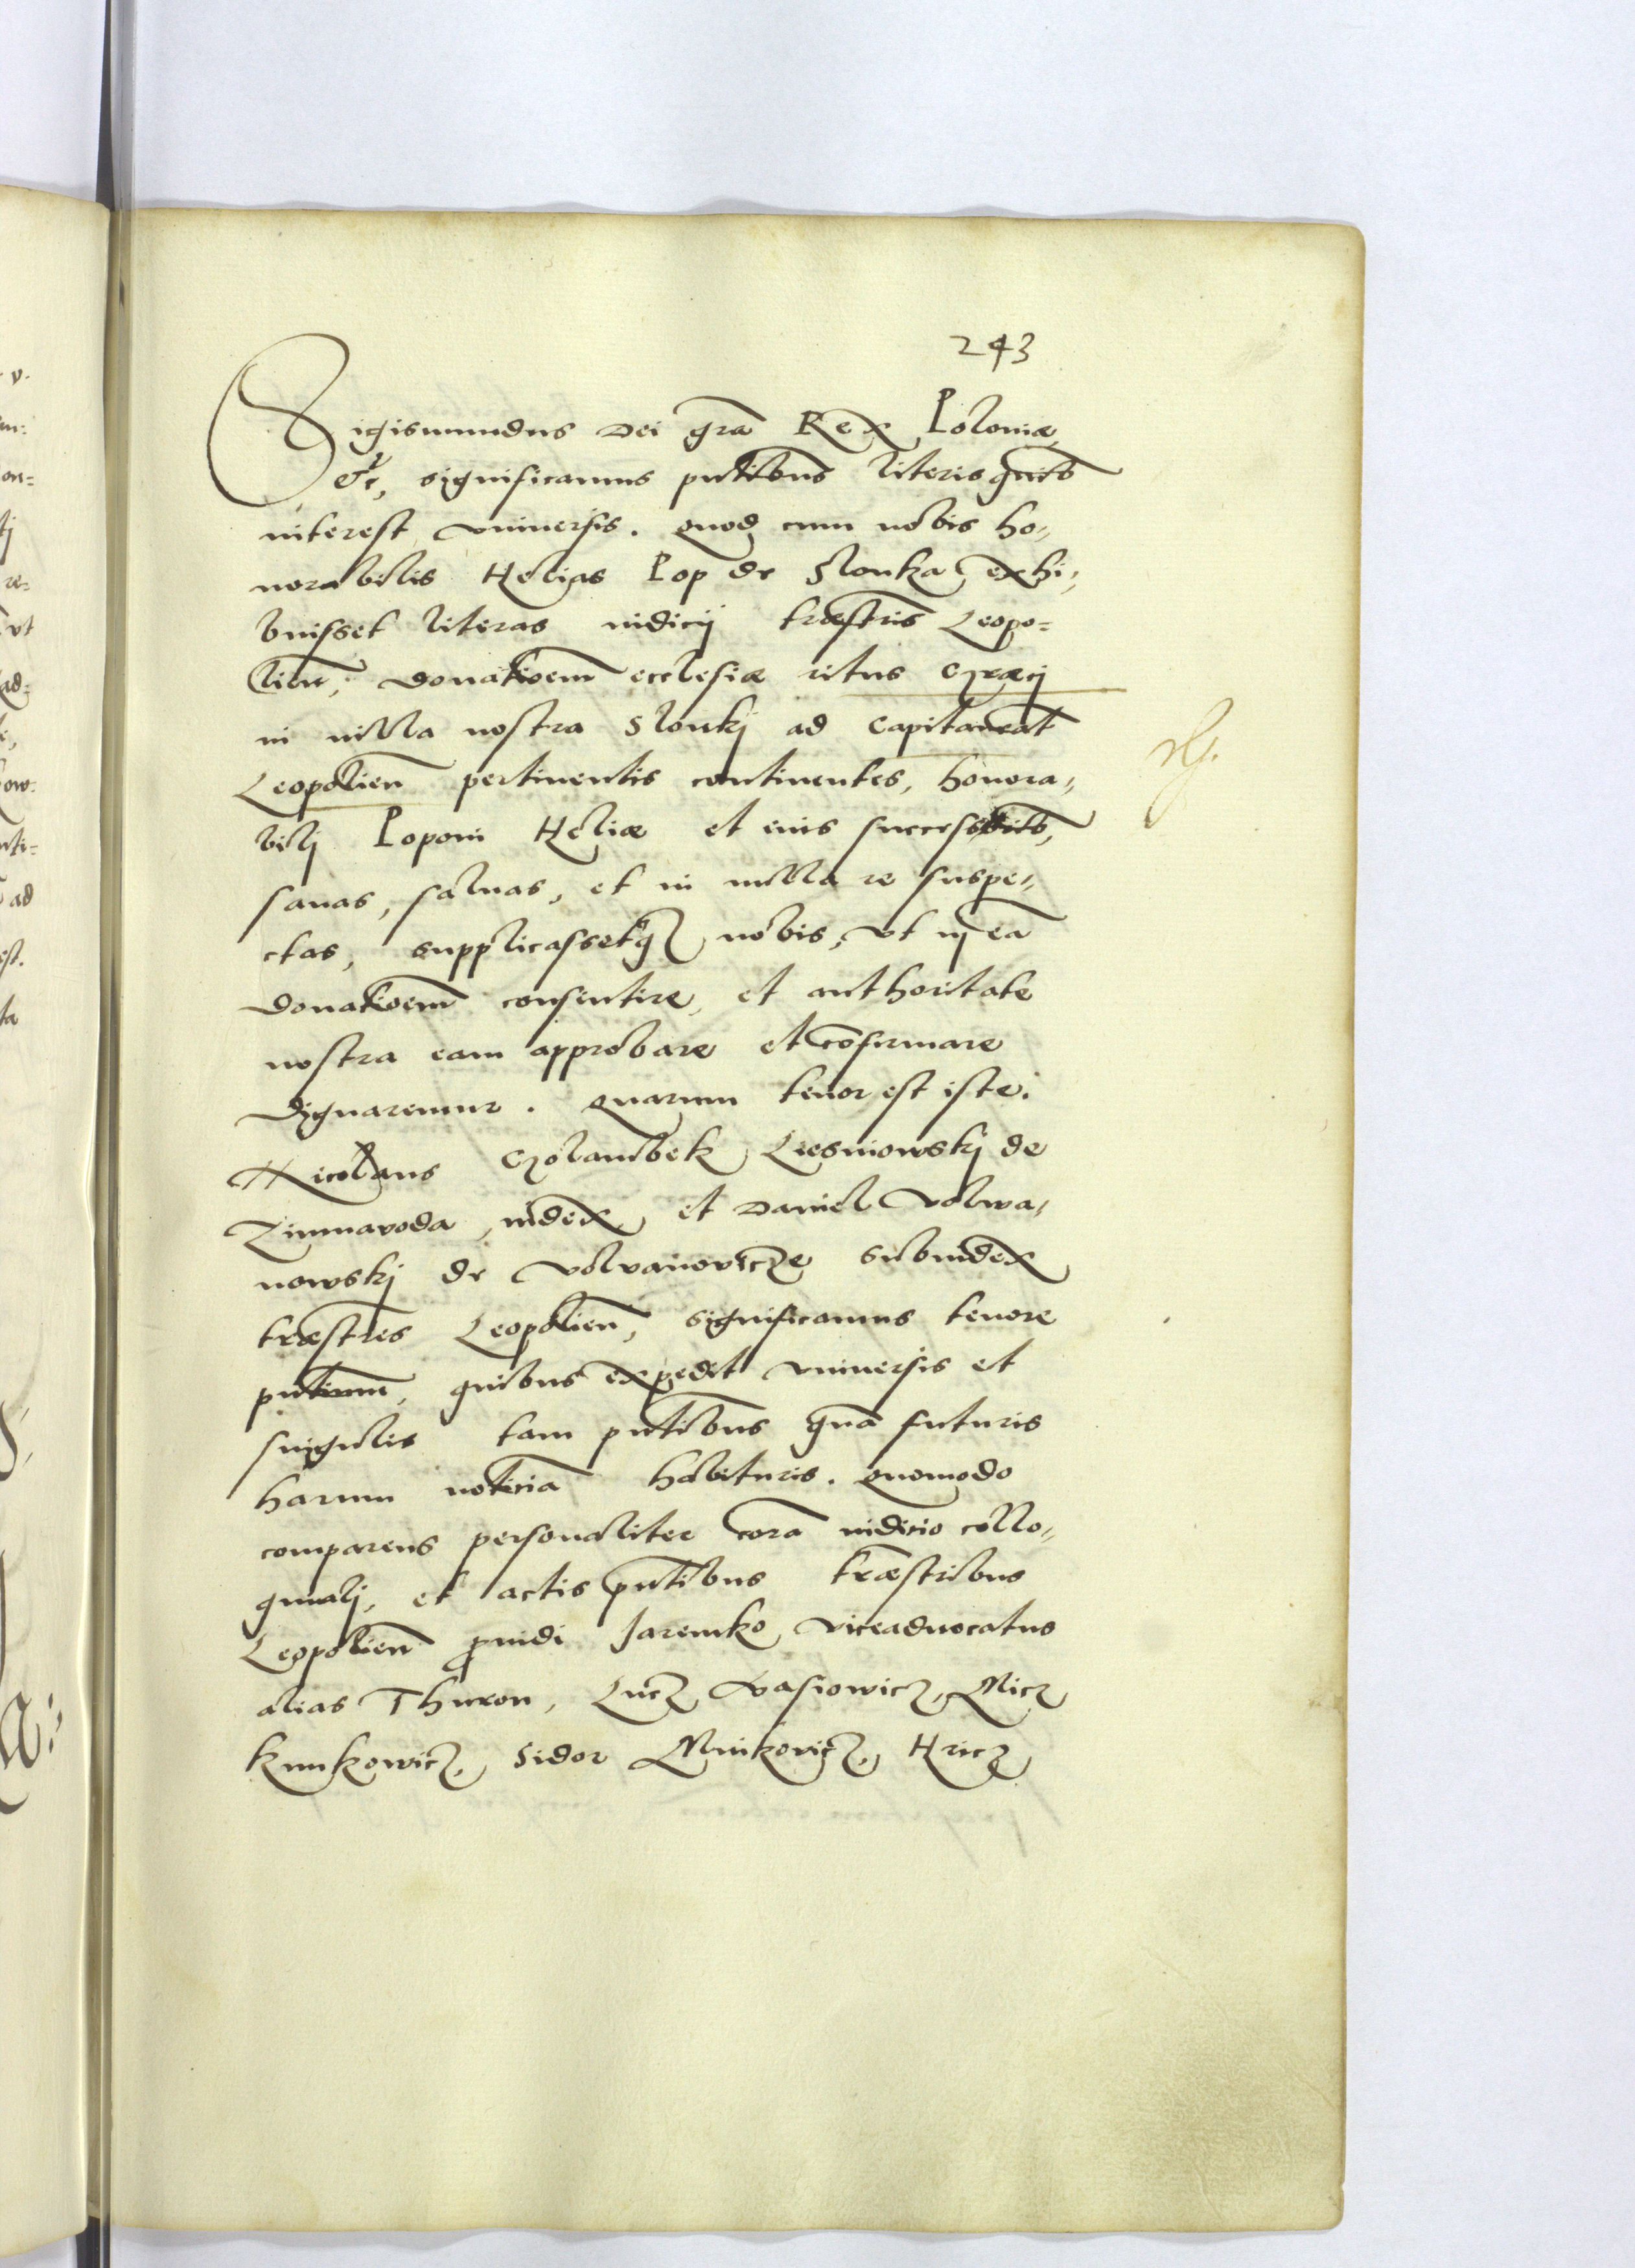 243
Sigismundus Dei gra Rex Poloniæ
etc, significamus pntibus literis quibs
interest vniuersis. Quod cum nobis ho-
norabilis Helias Pop de Slonka exhi-
buisset literas iudicij træstris Leopo-
lien, donatioem ecclesiæ ritus Græcj
in villa nostra Slonkj ad Capitaneat
Leopolien pertinentis continentes, honora-
bilj Poponi Heliæ et eius successoribs,
sanas, saluas, et in nulla re suspe-
ctas, supplicassetq nobis, vt in ea
donatioem consentire, et authoritate
nostra eam approbare et cofirmare
dignaremur. Quarum tenor est iste.
Nicolaus Golambek Liesniowskj de
Zimnavoda iudex, et Daniel Volwa-
nowskj de Volvanovicze subiudex
træstres Leopolien, significamus tenore
pntium, quibus expedit vniuersis et
singulis tam pntibus qua futuris
harum noticia habituris. Quomodo
comparens personaliter cora iudicio collo-
quialj, et actis pntibus træstribus
Leopolien puidi Jaremko viceaduocatus
alias Thuron, Lucz Vasiowicz, Micz
Kunkowicz, Sidor Minkovicz, Hricz